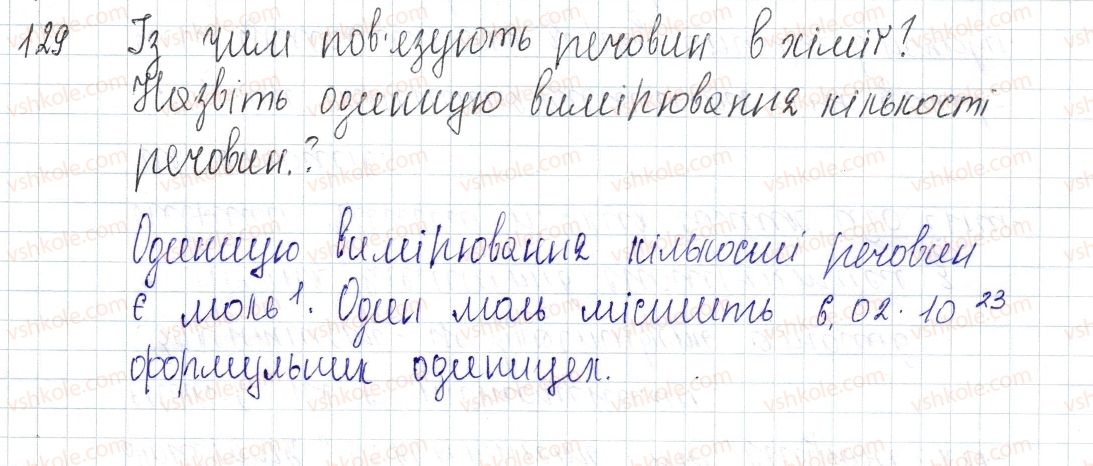 129 Із чим пов'язують речовин в хімії?
Назвіть одиницю вимірювання кількості
речовин.?
Одиницю вимірювання кількості речовин
є моль¹. Один моль містить 6,02·10²³
формульних одиниць.